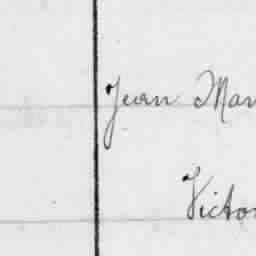 Jean Mar
Victor